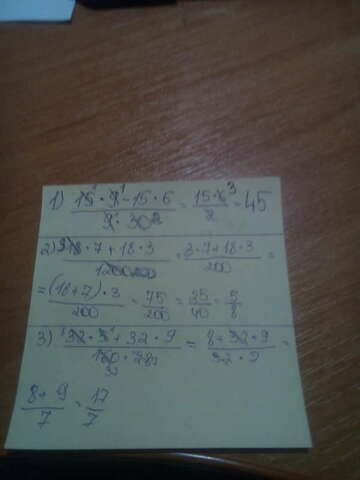 1) (15 · 9 - 15 · 6) / (9 · 30 2) = (15 · 6 3) / 2 = 45
2) 18 · 7 + 18 · 3 / 200 = 3 · 7 + 18 · 3 / 200 =
= (18 + 7) · 3 / 200 = 75 / 200 = 25 / 40 = 5 / 8
3) 32 · 5 + 32 · 9 / 28 = 8 + 32 · 9 / 32 · 2 =
8 + 9 / 7 = 17 / 7